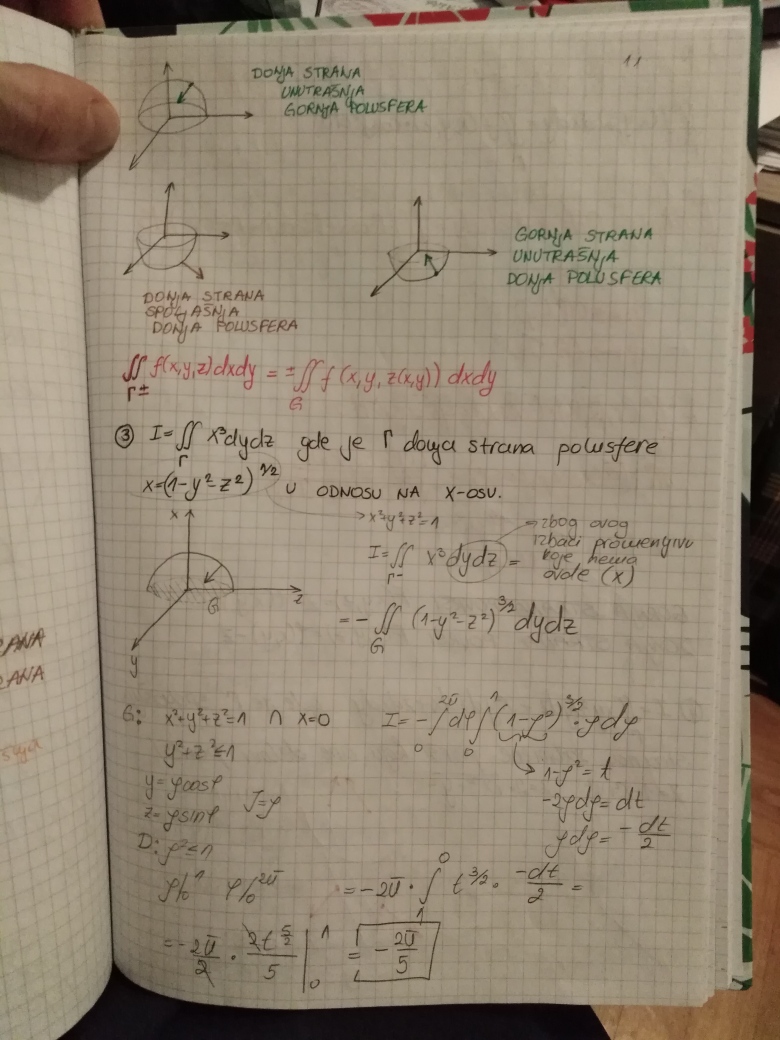 11
DONJA STRANA
UNUTRAŠNJA
GORNJA POLUSFERA
GORNJA STRANA
UNUTRAŠNJA
DONJA POLUSFERA
DONJA STRANA
SPOLJAŠNJA
DONJA POLUSFERA
∬ f(x,y,z)dxdy = ±∬ f(x,y,z(x,y)) dxdy
Γ± G
③ I=∬ x³dydz gde je Γ donja strana polusfere
Γ
x=(1-y²-z²)^1/2 U ODNOSU NA X-OSU.
→ x²+y²+z²=1
x
z
y
G
→ zbog ovog
izbaci promenjivu
koje nema
ovde (x)
I=∬ x³dydz =
Γ-
= -∬ (1-y²-z²)^3/2 dydz
G
G: x²+y²+z²=1 ∩ x=0
y²+z²≤1
y=ρcosφ
z=ρsinφ J=ρ
D: ρ²≤1
ρ/₀¹ φ/₀^2π
I= -∫₀^2π dφ ∫₀¹ (1-ρ²)^3/2 · ρdρ
→ 1-ρ²=t
-2ρdρ=dt
ρdρ= -dt/2
= -2π · ∫₁⁰ t^3/2 · -dt/2 =
= -2π/2 · 2t^5/2/5 |₀¹ = -2π/5